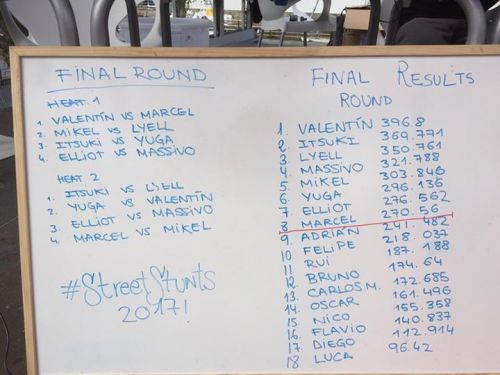 FINAL ROUND
HEAT 1
1. VALENTÍN VS MARCEL
2. MIKEL VS LYELL
3. ITSUKI VS YUGA
4. ELLIOT VS MASSIVO
HEAT 2
1. ITSUKI VS LYELL
2. YUGA VS VALENTÍN
3. ELLIOT VS MASSIVO
4. MARCEL VS MIKEL
#StreetStunts
2017!
FINAL RESULTS
ROUND
1. VALENTÍN 396.8
2. ITSUKI 369.771
3. LYELL 350.761
4. MASSIVO 321.788
5 MIKEL 303.846
6. YUGA 296.136
7 ELLIOT 276.562
8 MARCEL 270.56
9. ADRIÁN 241.482
10. FELIPE 218.037
11 RUI 187.188
12 BRUNO 174.64
13. CARLOS M. 172.685
14. OSCAR 161.496
15 NICO 155.358
16 FLAVIO 140.837
17. DIEGO 112.914
18 LUCA 96.42